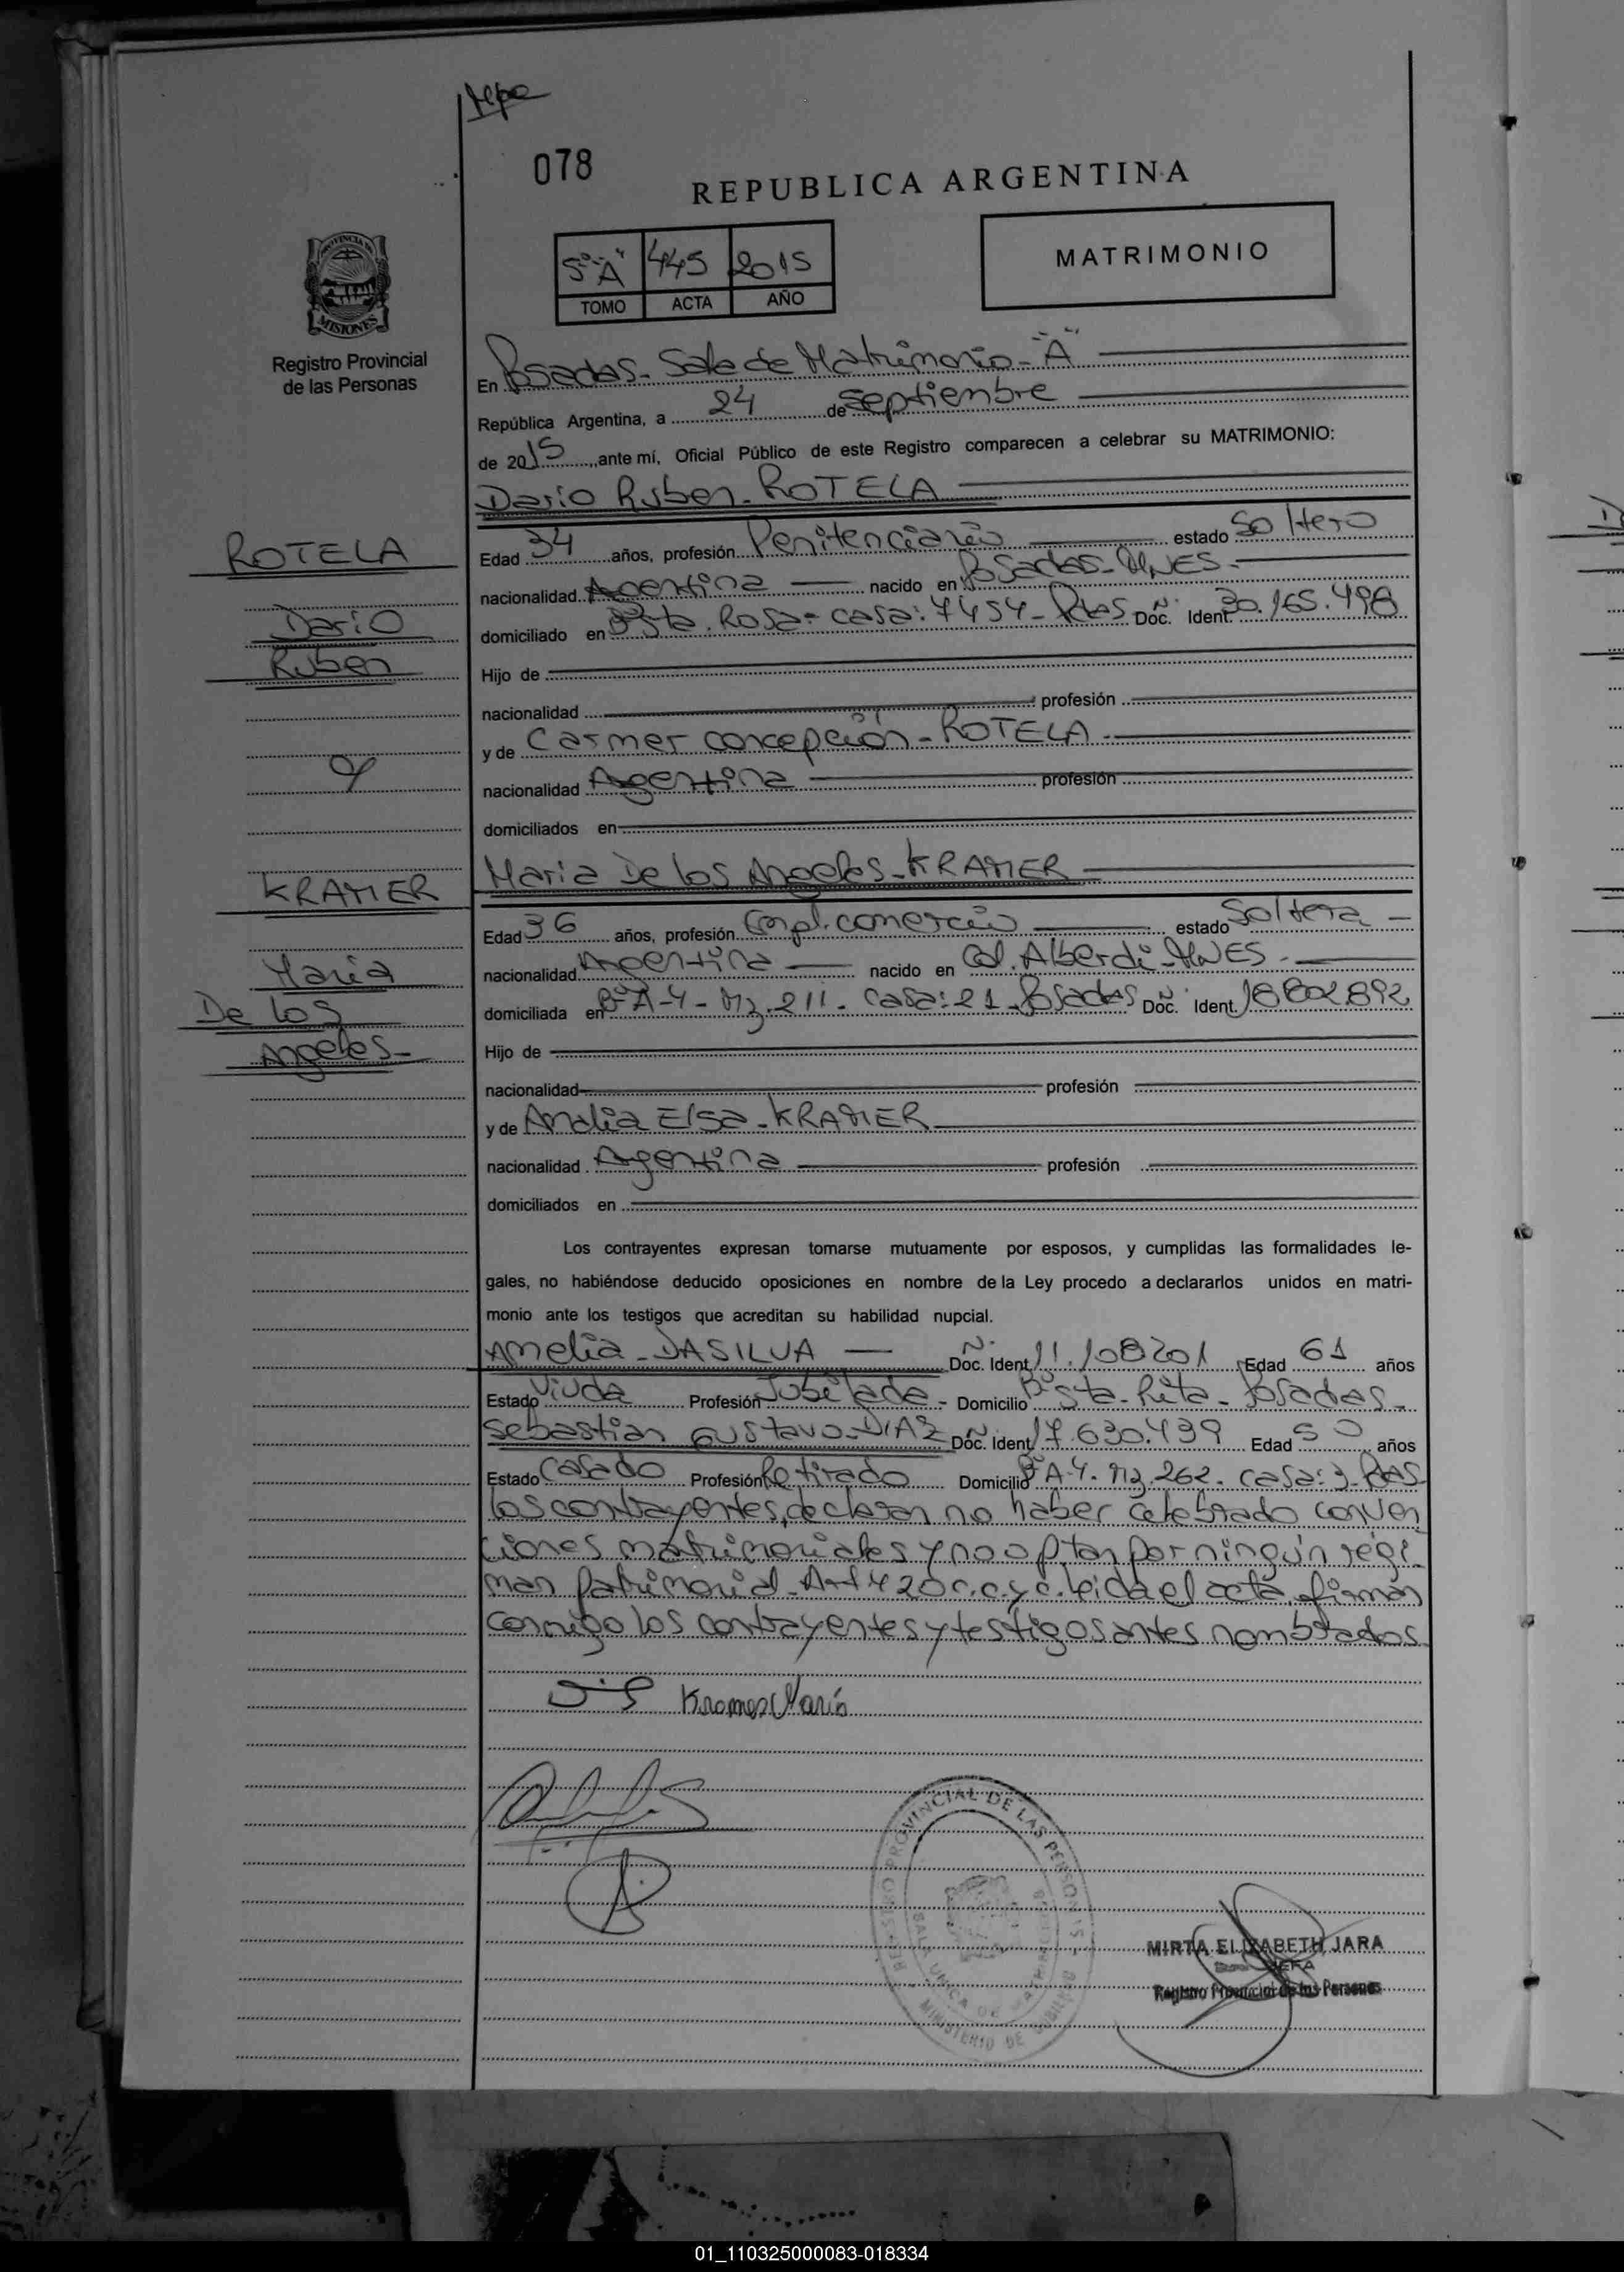 078
REPUBLICA ARGENTINA
5º "A" 445 2015
TOMO ACTA AÑO
MATRIMONIO
PROVINCIA DE
MISIONES
Registro Provincial
de las Personas
En Posadas - Sala de Matrimonio - "A"
República Argentina, a 24 de septiembre
de 2015, ante mí, Oficial Público de este Registro comparecen a celebrar su MATRIMONIO:
Dario Ruben - ROTELA
ROTELA
Dario
Ruben
y
KRAMER
Maria
De Los
Angeles -
Edad 34 años, profesión Penitenciario estado Soltero
nacionalidad Argentina nacido en Posadas - MNES -
domiciliado en Bº Sta. Rosa - casa: 7454 - Pdas Nº Doc. Ident. 30.165.498
Hijo de
nacionalidad profesión
y de Carmen Concepción - ROTELA -
nacionalidad Argentina profesión
domiciliados en
Maria De los Angeles - KRAMER
Edad 36 años, profesión Empl. comercio estado Soltera -
nacionalidad Argentina nacido en Col. Alberdi - MNES -
domiciliada en Bº A-4 - Mz. 211 - casa: 21 - Posadas Nº Doc. Ident. 18.802.892
Hijo de
nacionalidad profesión
y de Analia Elsa - KRAMER
nacionalidad Argentina profesión
domiciliados en
Los contrayentes expresan tomarse mutuamente por esposos, y cumplidas las formalidades le-
gales, no habiéndose deducido oposiciones en nombre de la Ley procedo a declararlos unidos en matri-
monio ante los testigos que acreditan su habilidad nupcial.
Amelia - DASILVA Nº Doc. Ident. 11.108201 Edad 61 años
Estado Viuda Profesión Jubilada - Domicilio Bº Sta - Rita - Posadas -
Sebastian Gustavo - DIAZ Nº Doc. Ident. 17.630.439 Edad 50 años
Estado Casado Profesión Retirado Domicilio Bº A-4 - Mz. 262 - casa: 3 - Pdas
los contrayentes, declaran no haber celebrado conven
ciones matrimoniales y no optan por ningún regi-
men patrimonial - Art 420 c.c.y c. leida el acta, firman
conmigo los contrayentes y testigos antes nombrados
Kramer Maria
REGISTRO PROVINCIAL DE LAS PERSONAS
MINISTERIO DE GOBIERNO
MIRTA ELIZABETH JARA
JEFA
Registro Provincial de las Personas
01_110325000083-018334